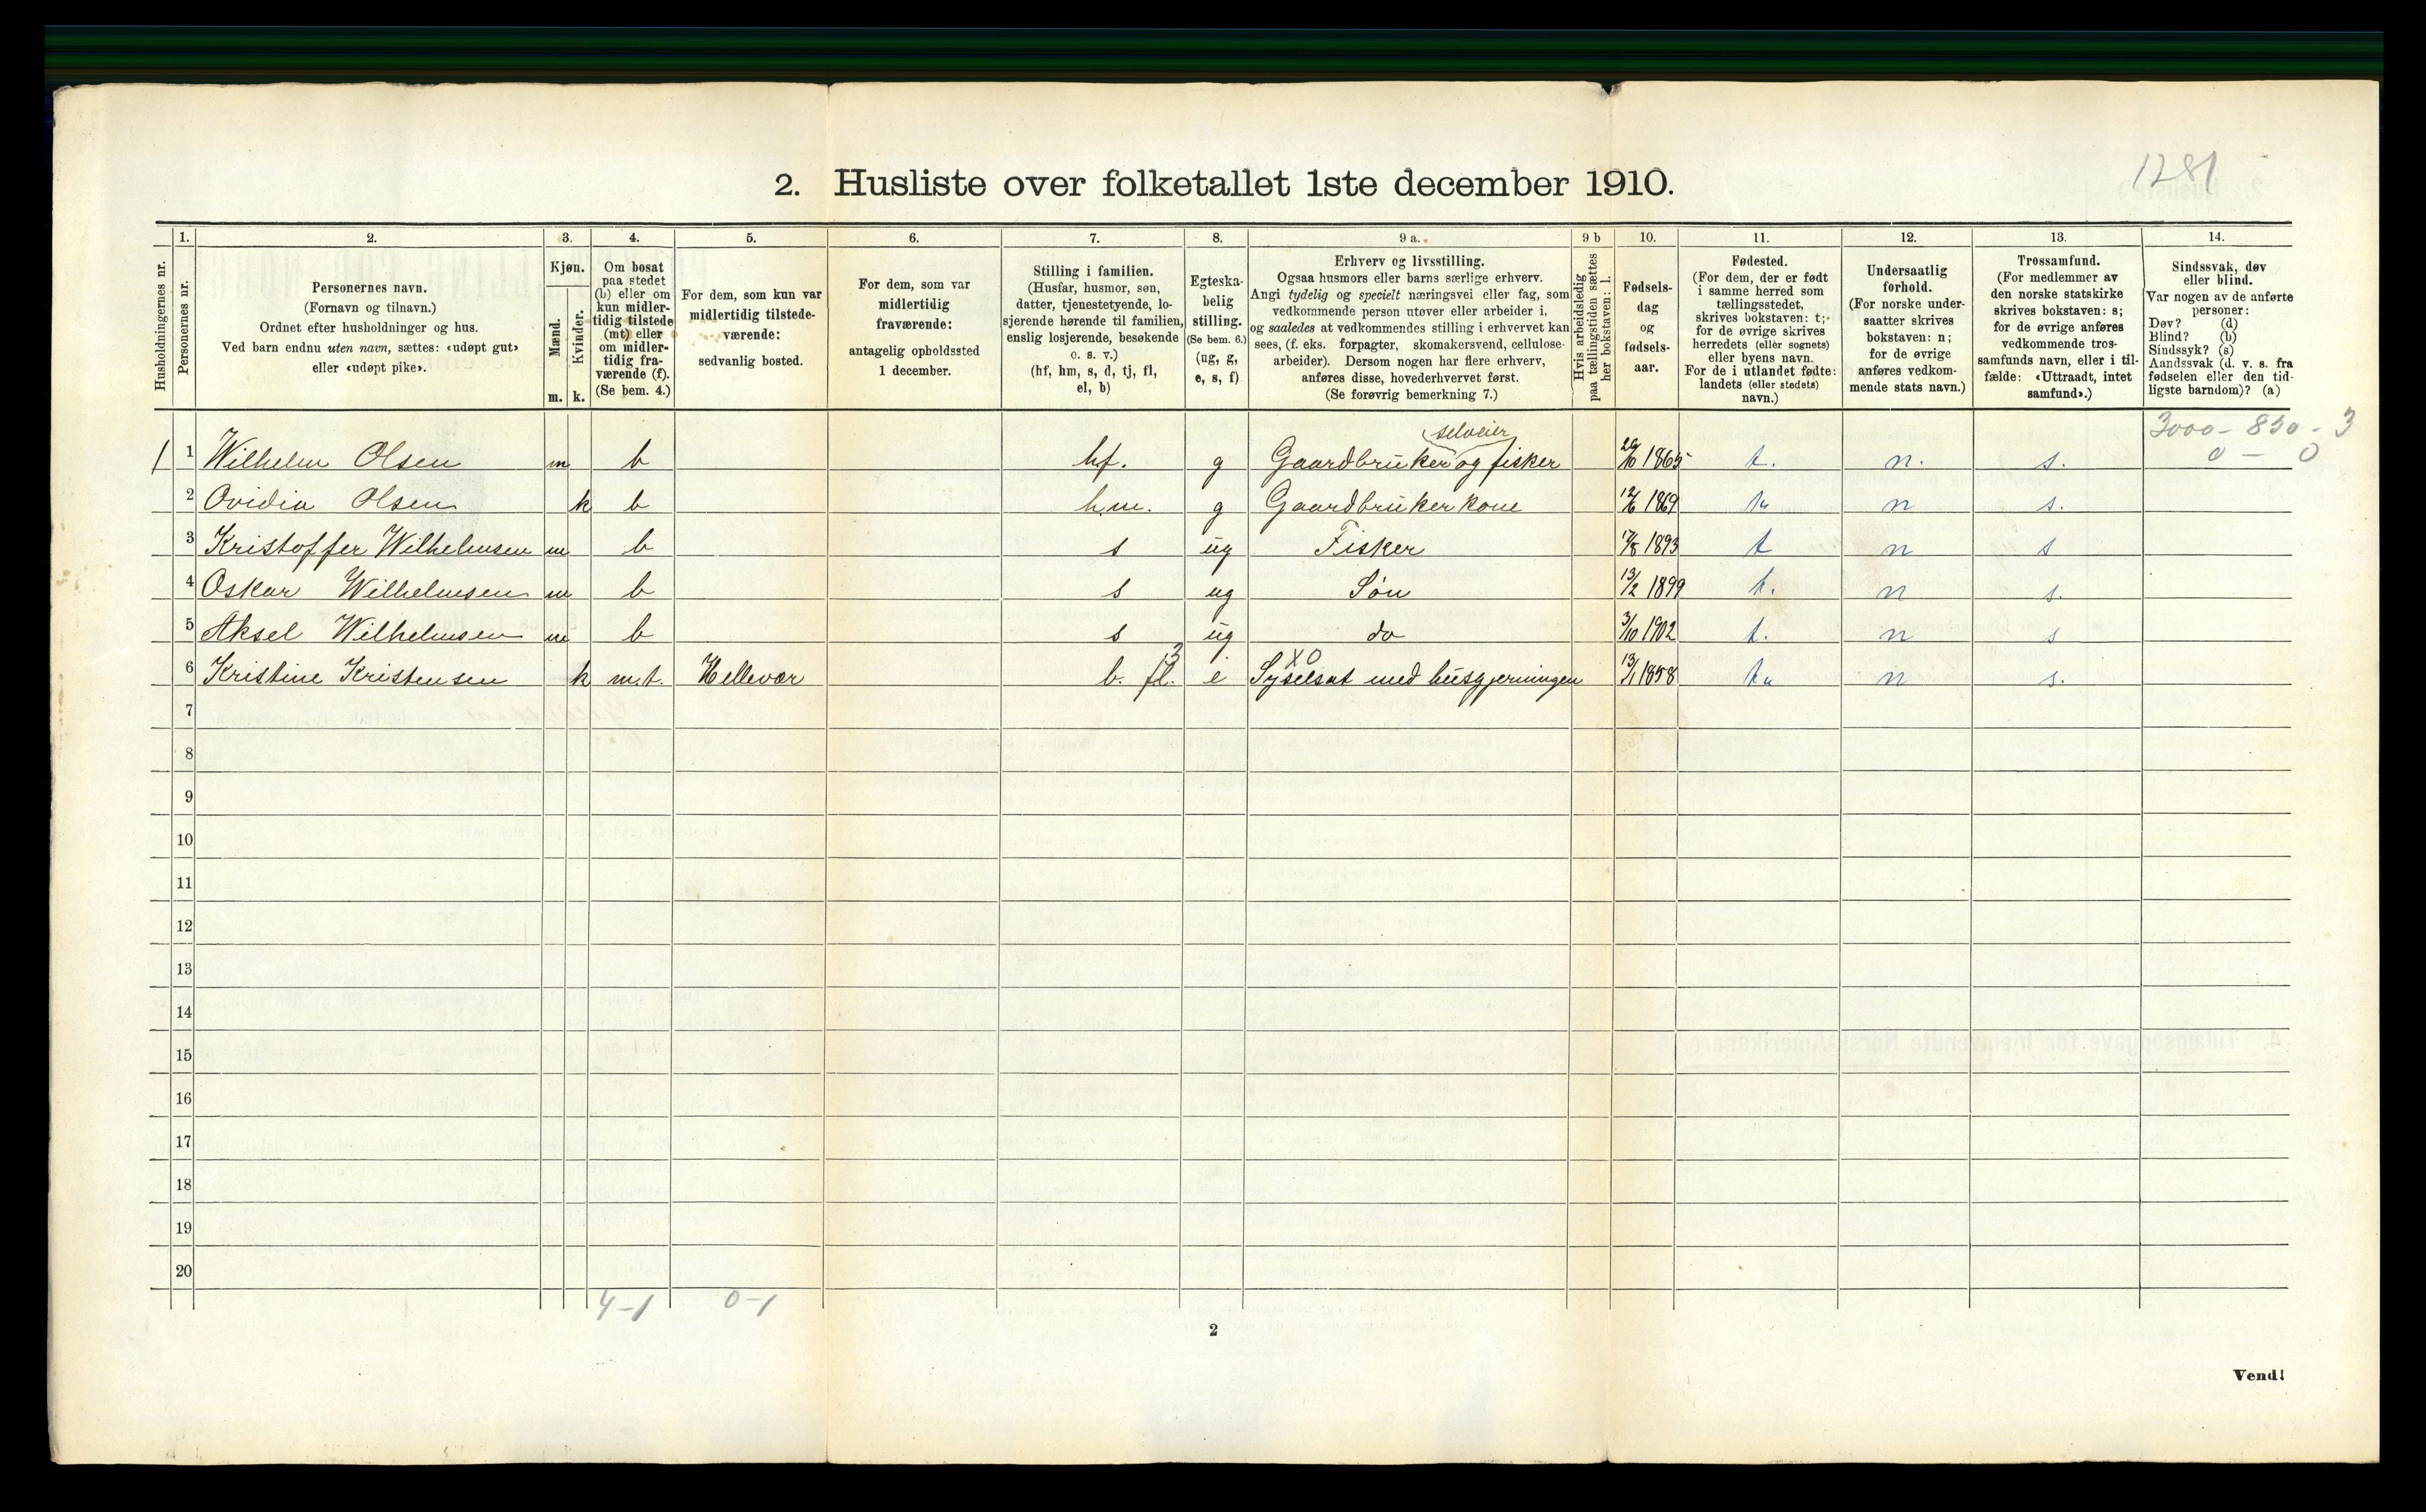 1281
2. Husliste over folketallet 1ste december 1910.
Husholdningernes nr.
1.
Personernes nr.
2.
Personernes navn.
(Fornavn og tilnavn.)
Ordnet efter husholdninger og hus.
Ved barn endnu uten navn, sættes: «udøpt gut»
eller «udøpt pike».
3.
Kjøn.
Mænd.
Kvinder.
m. k.
4.
Om bosat
paa stedet
(b) eller om
kun midler-
tidig tilstede
(mt) eller
om midler-
tidig fra-
værende (f).
(Se bem. 4.)
5.
For dem, som kun var
midlertidig tilstede-
værende:
sedvanlig bosted.
6.
For dem, som var
midlertidig
fraværende:
antagelig opholdssted
1 december.
7.
Stilling i familien.
(Husfar, husmor, søn,
datter, tjenestetyende, lo-
sjerende hørende til familien,
enslig losjerende, besøkende
o. s. v.)
(hf, hm, s, d, tj, fl,
el, b)
8.
Egteska-
belig
stilling.
(Se bem. 6.)
(ug, g,
e, s, f)
9 a.
Erhverv og livsstilling.
Ogsaa husmors eller barns særlige erhverv.
Angi tydelig og specielt næringsvei eller fag, som
vedkommende person utøver eller arbeider i,
og saaledes at vedkommendes stilling i erhvervet kan
sees, (f. eks. forpagter, skomakersvend, cellulose-
arbeider). Dersom nogen har flere erhverv,
anføres disse, hovederhvervet først.
(Se forøvrig bemerkning 7.)
9 b
Hvis arbeidsledig
paa tællingstiden sættes
her bokstaven: l.
10.
Fødsels-
dag
og
fødsels-
aar.
11.
Fødested.
(For dem, der er født
i samme herred som
tællingsstedet,
skrives bokstaven: t;
for de øvrige skrives
herredets (eller sognets)
eller byens navn.
For de i utlandet fødte:
landets (eller stedets)
navn.)
12.
Undersaatlig
forhold.
(For norske under-
saatter skrives
bokstaven: n;
for de øvrige
anføres vedkom-
mende stats navn.)
13.
Trossamfund.
(For medlemmer av
den norske statskirke
skrives bokstaven: s;
for de øvrige anføres
vedkommende tros-
samfunds navn, eller i til-
fælde: «Uttraadt, intet
samfund».)
14.
Sindssvak, døv
eller blind.
Var nogen av de anførte
personer:
Døv? (d)
Blind? (b)
Sindssyk? (s)
Aandssvak (d. v. s. fra
fødselen eller den tid-
ligste barndom)? (a)
3000 - 850 - 3
0 - 0
selveier
1 1 Wilhelm Olsen m b hf. g Gaardbruker og fisker 1865 t. n. s.
2 Ovidia Olsen k b hm. g Gaardbruker kone 12/6 1869 n s.
3 Kristoffer Wilhelmsen m b s ug Fisker 1893 t n s
4 Oskar Wilhelmsen m b s ug Søn 13/2 1899 t. n s.
5 Aksel Wilhelmsen m b s ug do 3/10 1902 t. n s
3 X0
6 Kristine Kristensen k m.t. Hellevær b. fl. e Syselsat med husgjerningen 13/1 1858 n s.
7
8
9
10
11
12
13
14
15
16
17
18
19
20
4-1 0-1
2
Vend!